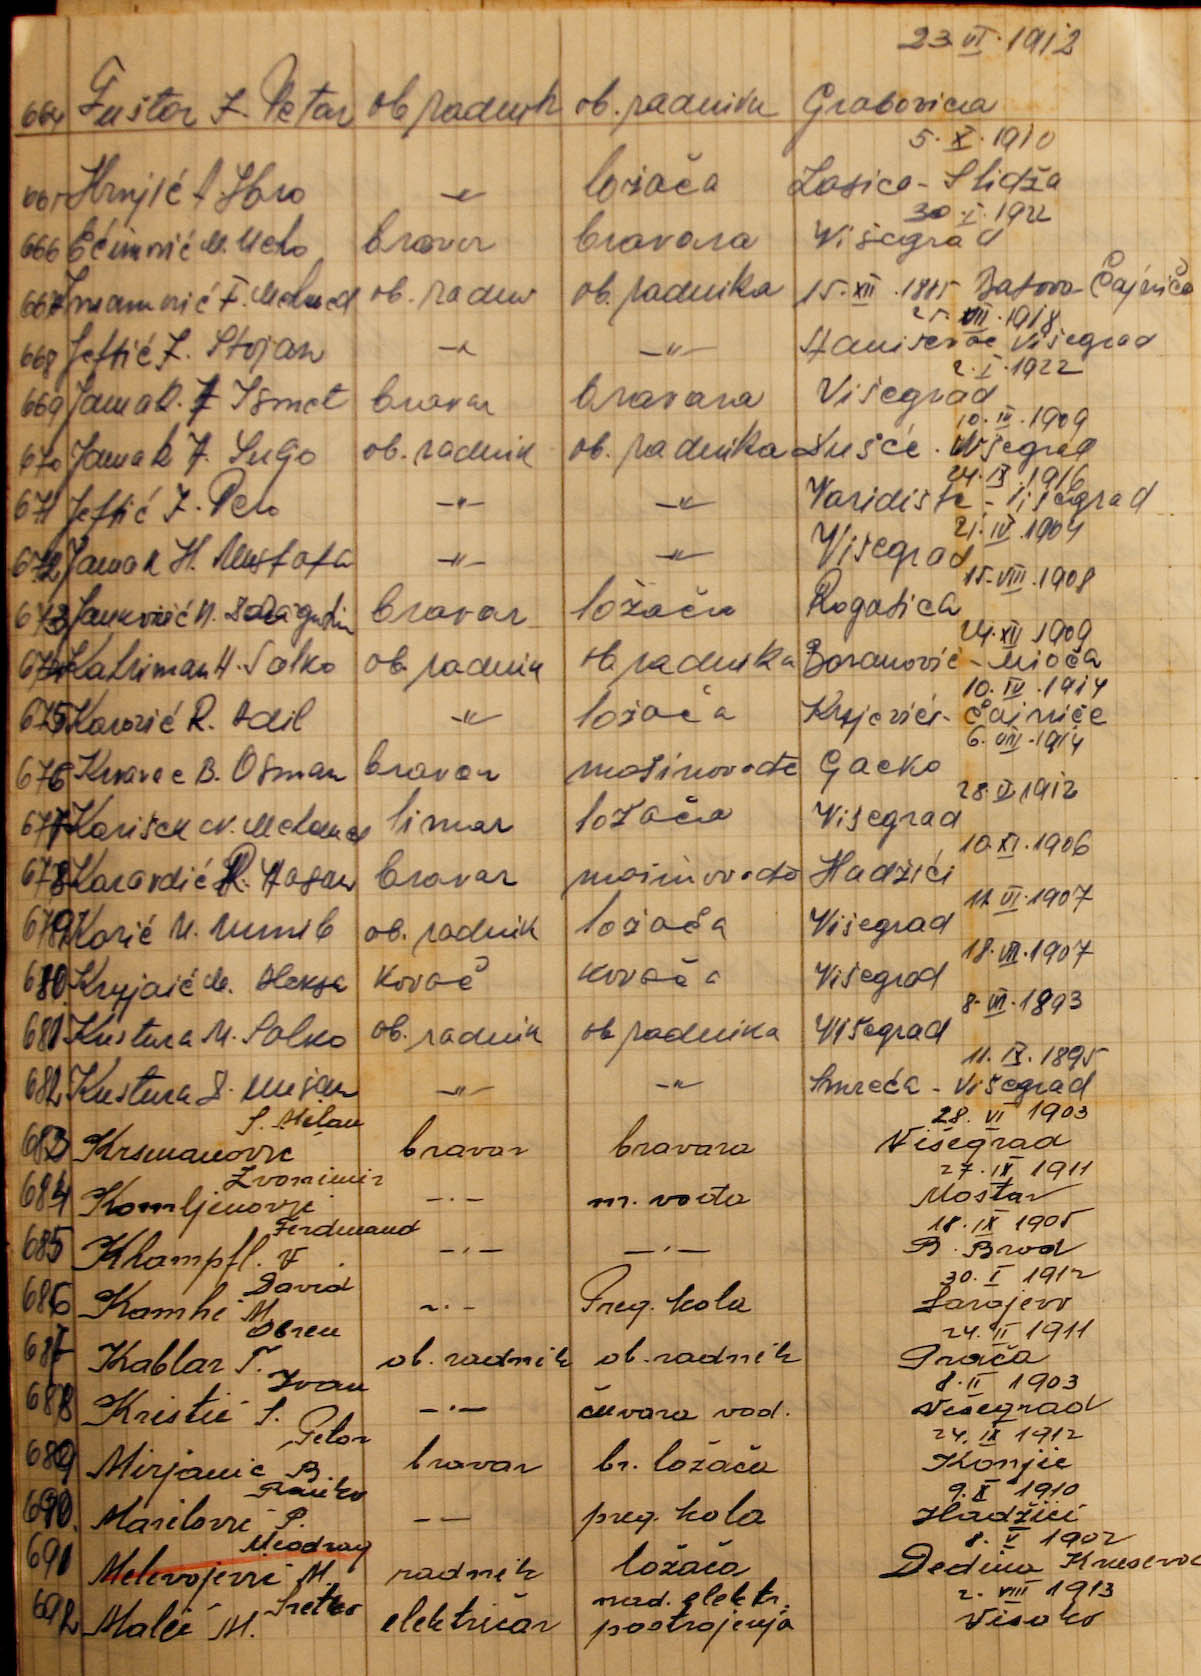 23. VI. 1912
664 Fuštor J. Petar ob. radnik ob. radnika Grabovica
5. X. 1910
665 Hrnjić A. Ibro -"- ložača - Ilidža
30. I. 1922
666 Ećimović M. bravar bravara Višegrad
667 Imamović I. Mehmed ob. radnik ob. radnika 15. XII. 1885 Čajniče
25. VIII. 1918
668 Jeftić J. Stojan -"- -"- Staniševac Višegrad
2. I. 1922
669 Jamak Ismet bravar bravara Višegrad
10. IV. 1909
670 Jamak J. Suljo ob. radnik ob. radnika Dušće - Višegrad
24. IX. 1916
671 Jeftić J. Pero -"- -"- Vardište - Višegrad
21. IV. 1904
672 Jamak H. Mustafa -"- -"- Višegrad
15. VIII. 1908
673 Janković N. Dragutin bravar ložača Rogatica
24. XII 1909
674 Kahriman H. Salko ob. radnik ob. radnika - Mioča
10. IV. 1914
675 R. Adil -"- ložača - Čajniče
6. VIII. 1914
676 Kravac B. Osman bravar mašinovođe Gacko
28. 1912
677 Karišik M. Mehmed limar ložača Višegrad
10. XI. 1906
678 Karavdić R. Hasan bravar mašinovođe Hadžići
VI. 1907
679 Korić M. Munib ob. radnik ložača Višegrad
18. VII. 1907
680 M. Aleksa kovač kovača Višegrad
8. III. 1893
681 Kustura M. Salko ob. radnik ob. radnika Višegrad
11. IX. 1895
682 Kustura Mušan -"- -"- Smreća - Višegrad
S. Milan 28. VI 1903
683 Krsmanović bravar bravara Višegrad
Zvonimir 27. IX 1911
684 Komljenović -"- m. vođa Mostar
Ferdinand 18. IX 1905
685 Klampfl. F. -"- -"- B. Brod
David 30. I 1912
686 Kamhi M. -"- Preg. kola Sarajevo
Obren 24. II 1911
687 Kablar T. ob. radnik ob. radnik Prača
Ivan 8. II 1903
688 Kristić S. -"- čuvara vod. Višegrad
Petar 24. IX 1912
689 Mirjanić B. bravar br. ložača Konjic
Ranko 9. X 1910
690. Marilović P. -"- preg. kola Hadžići
Miodrag 8. V 1902
691 Milivojević M. radnik ložača Dedina Kruševac
Sretko nad. elektr. 2. VIII 1913
692 Malić M. električar postrojenja Visoko